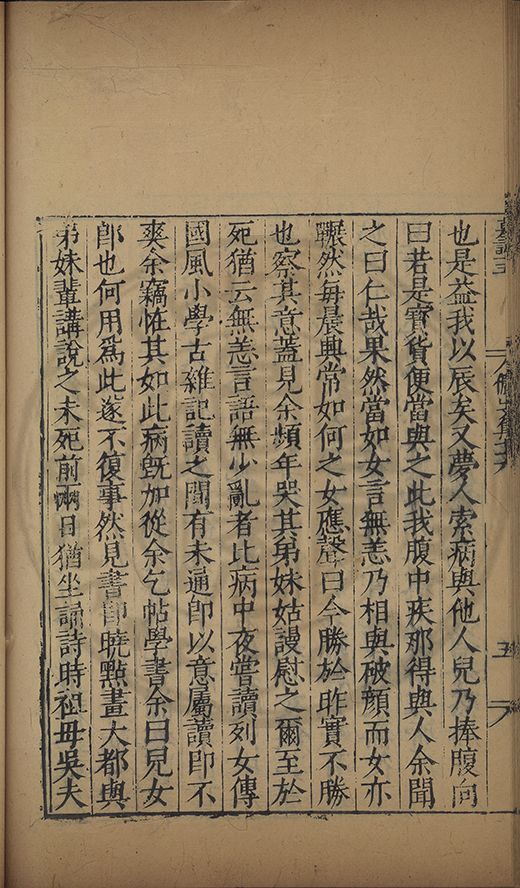 五
也是益我以辰矣又夢人索病與他人兒乃捧腹向
曰若是寳貨便當與之此我腹中疾那得與人余聞
之曰仁哉果然當如女言無恙乃相與破顏而女亦
囅然每晨興常如何之女應聲曰今勝於昨實不勝
也察其意蓋見余頻年哭其弟妹姑謾慰之爾至於
死猶云無恙言語無少亂者比病中夜嘗讀列女傳
國風小學古雜記讀之間有未通卽以意屬讀卽不
爽余竊恠其如此病旣加從余乞帖學書余曰兒女
郎也何用爲此遂不復事然見書卽曉點畫大都與
弟妹輩講說之未死前兩日猶坐誦詩時祖母吳夫